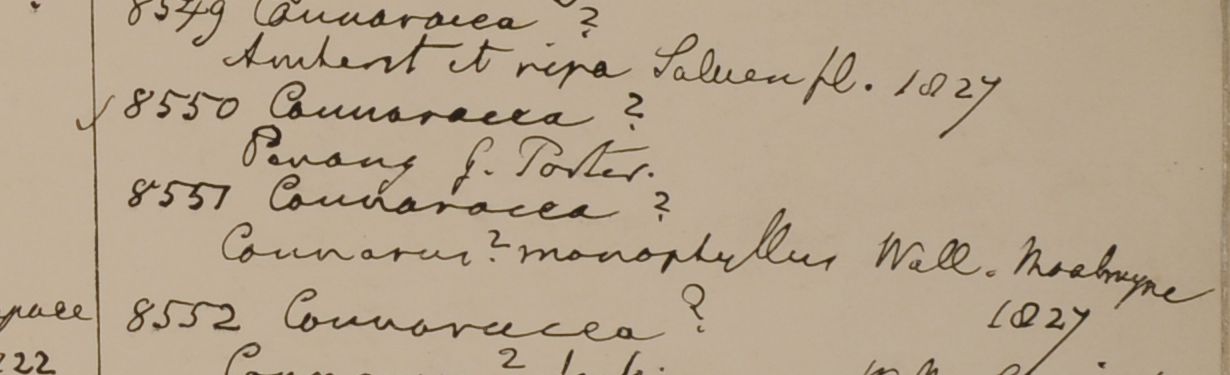 8549 Connaracea ?
Amherst et ripa Saluen fl. 1827
8550 Connaracea ?
Penang G. Porter.
8551 Connaracea ?
Connarus? monophyllus Wall. Moalmyne
1827
8552 Connaracea ?
space
222